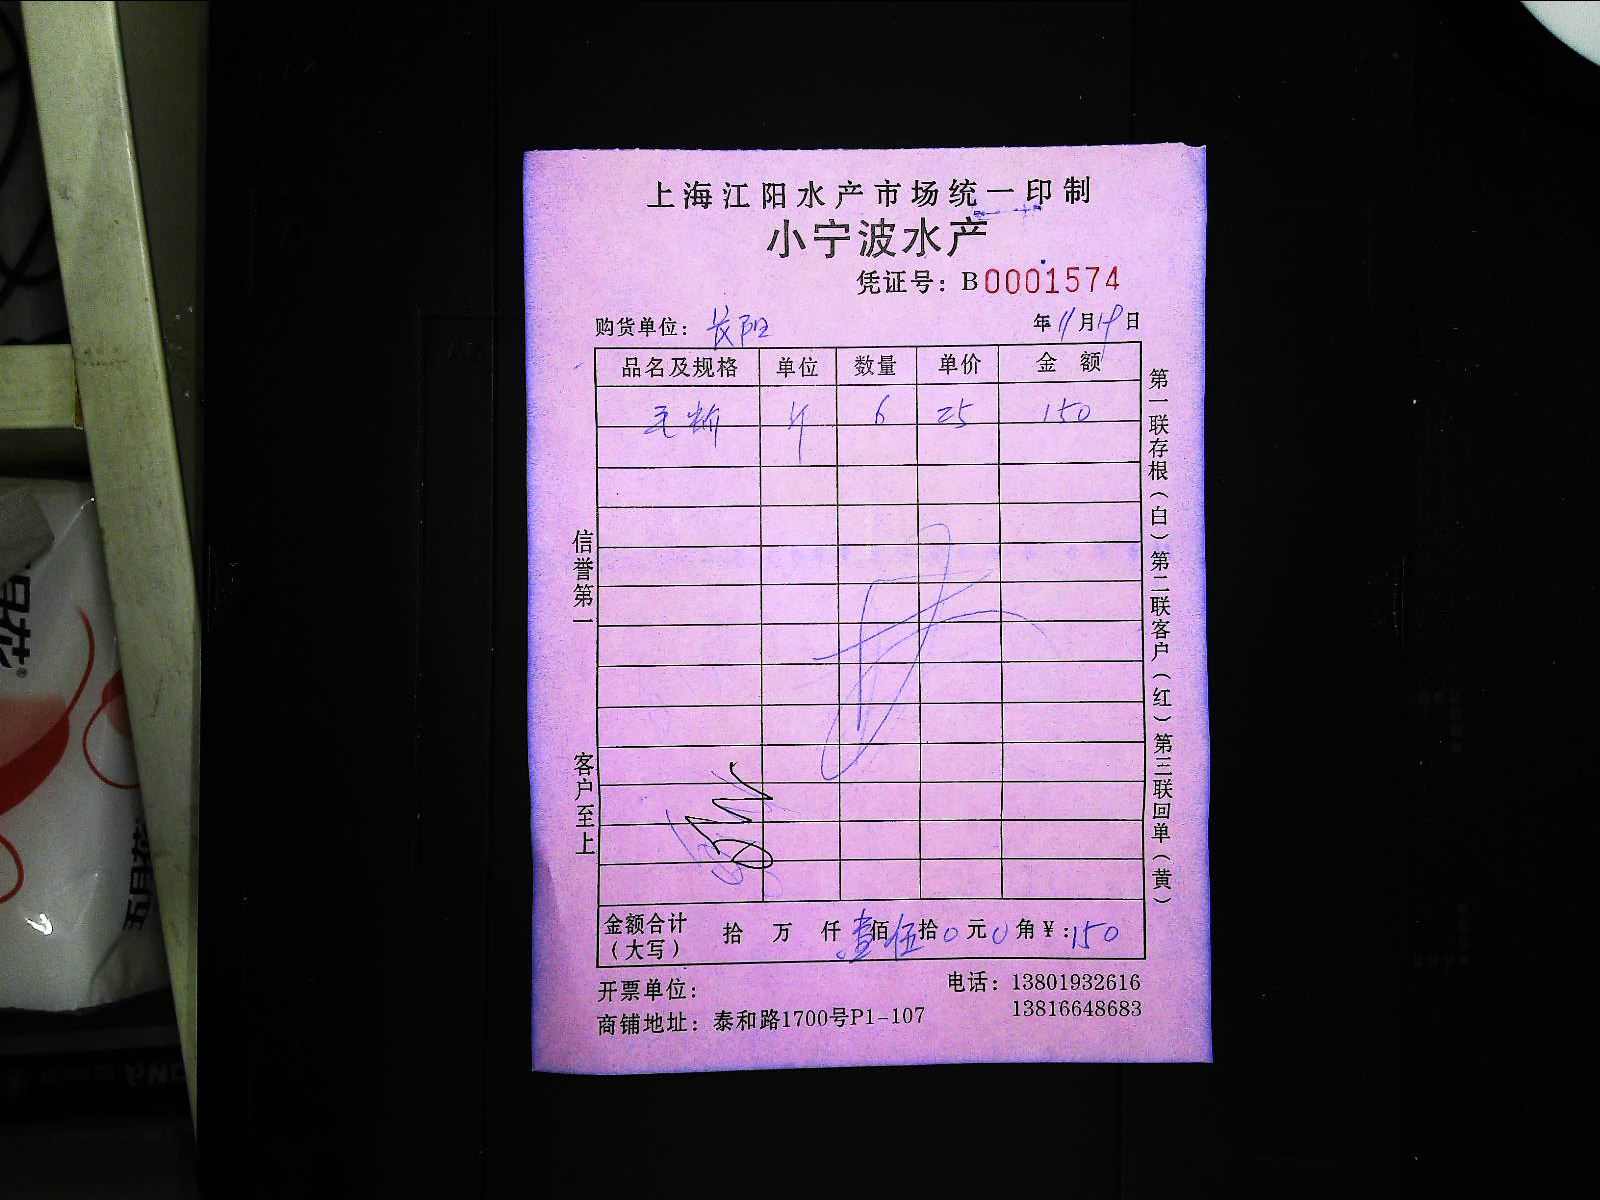 上海江阳水产市场统一印制
小宁波水产
凭证号：B0001574
购货单位：长阳 年11月19日
品名及规格 单位 数量 单价 金额
毛 斤 6 25 150
信誉第一
客户至上
第一联存根（白）第二联客户（红）第三联回单（黄）
金额合计（大写） 拾 万 仟 壹佰伍拾0元0角￥：150
开票单位： 电话：13801932616
13816648683
商铺地址：泰和路1700号P1-107